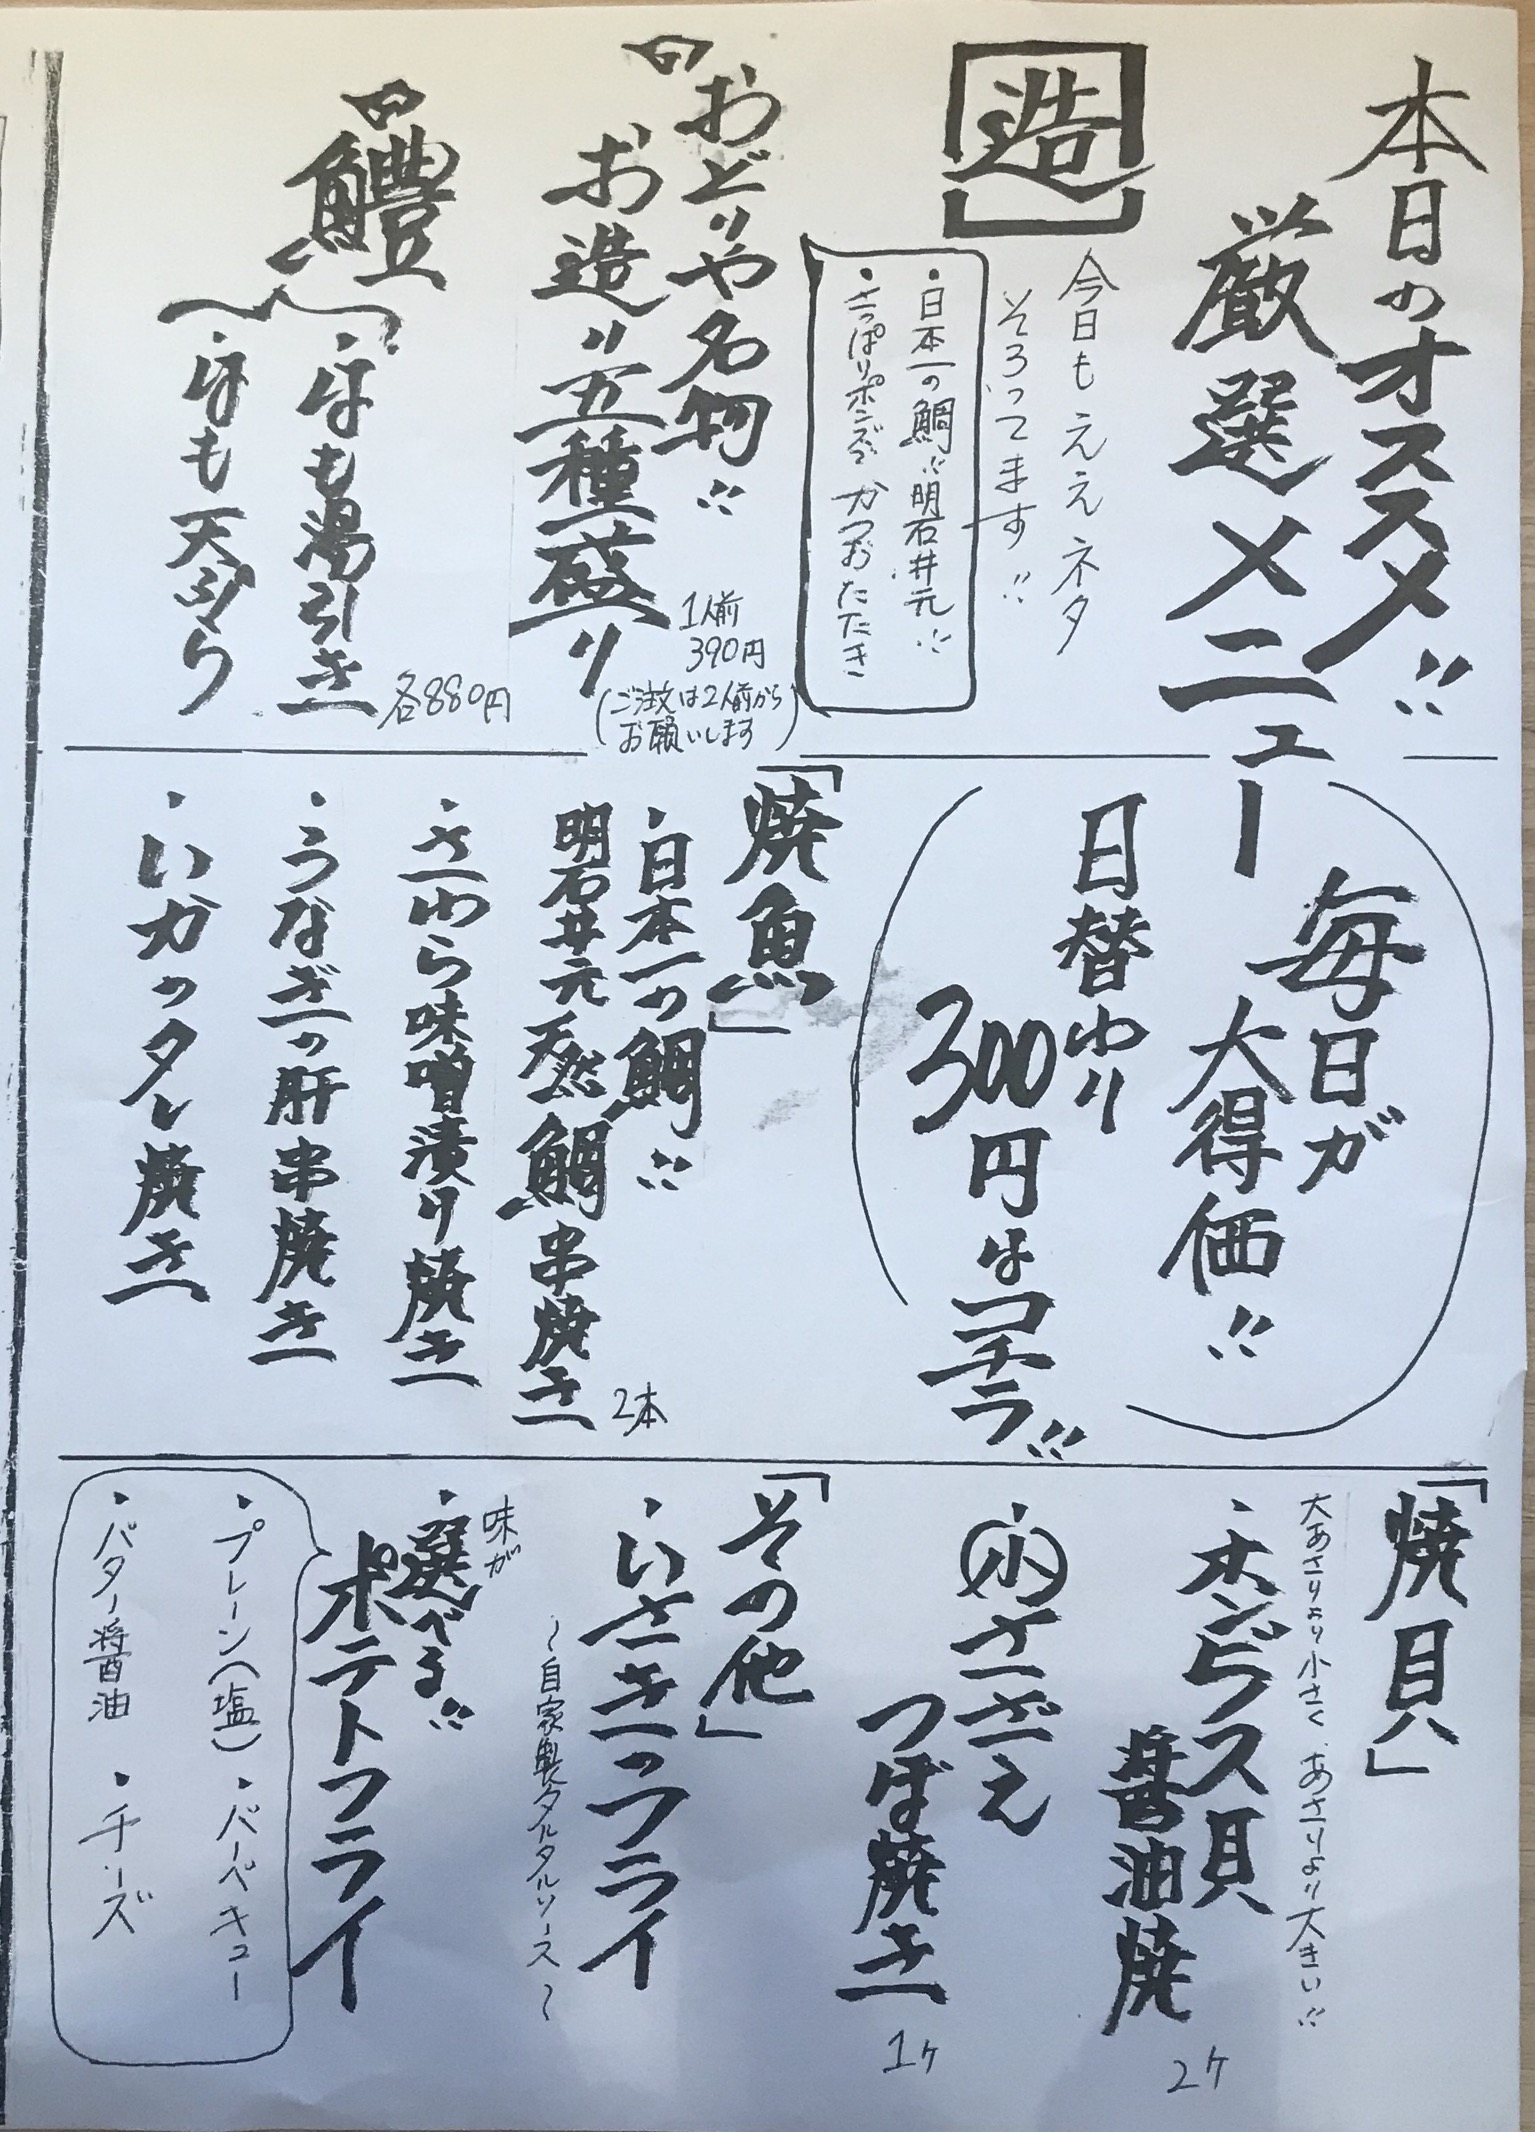 本日のオススメ!!
厳選メニュー
造
今日もええネタ
そろってます!!
・日本一の鯛!!明石井元!!
・さっぱりポンズでかつおたたき
おどりや名物!!
お造り五種盛り
1人前
390円
(ご注文は2人前から
お願いします)
鱧
・はも湯引き
・はも天ぷら
各880円
毎日が
大得価!!
日替わり
300円はコチラ!!
「焼魚」
・日本一の鯛!!
明石井元天然鯛串焼き
2本
・さわら味噌漬け焼き
・うなぎの肝串焼き
・いかのタレ焼き
「焼貝」
大あさりより小さく、あさりより大きい!!
・ホンビノス貝
醤油焼
2ケ
・小さざえ
つぼ焼き
1ケ
「その他」
・いさきのフライ
〜自家製タルタルソース〜
味が
・選べる!!
ポテトフライ
・プレーン(塩)・バーベキュー
・バター醤油・チーズ